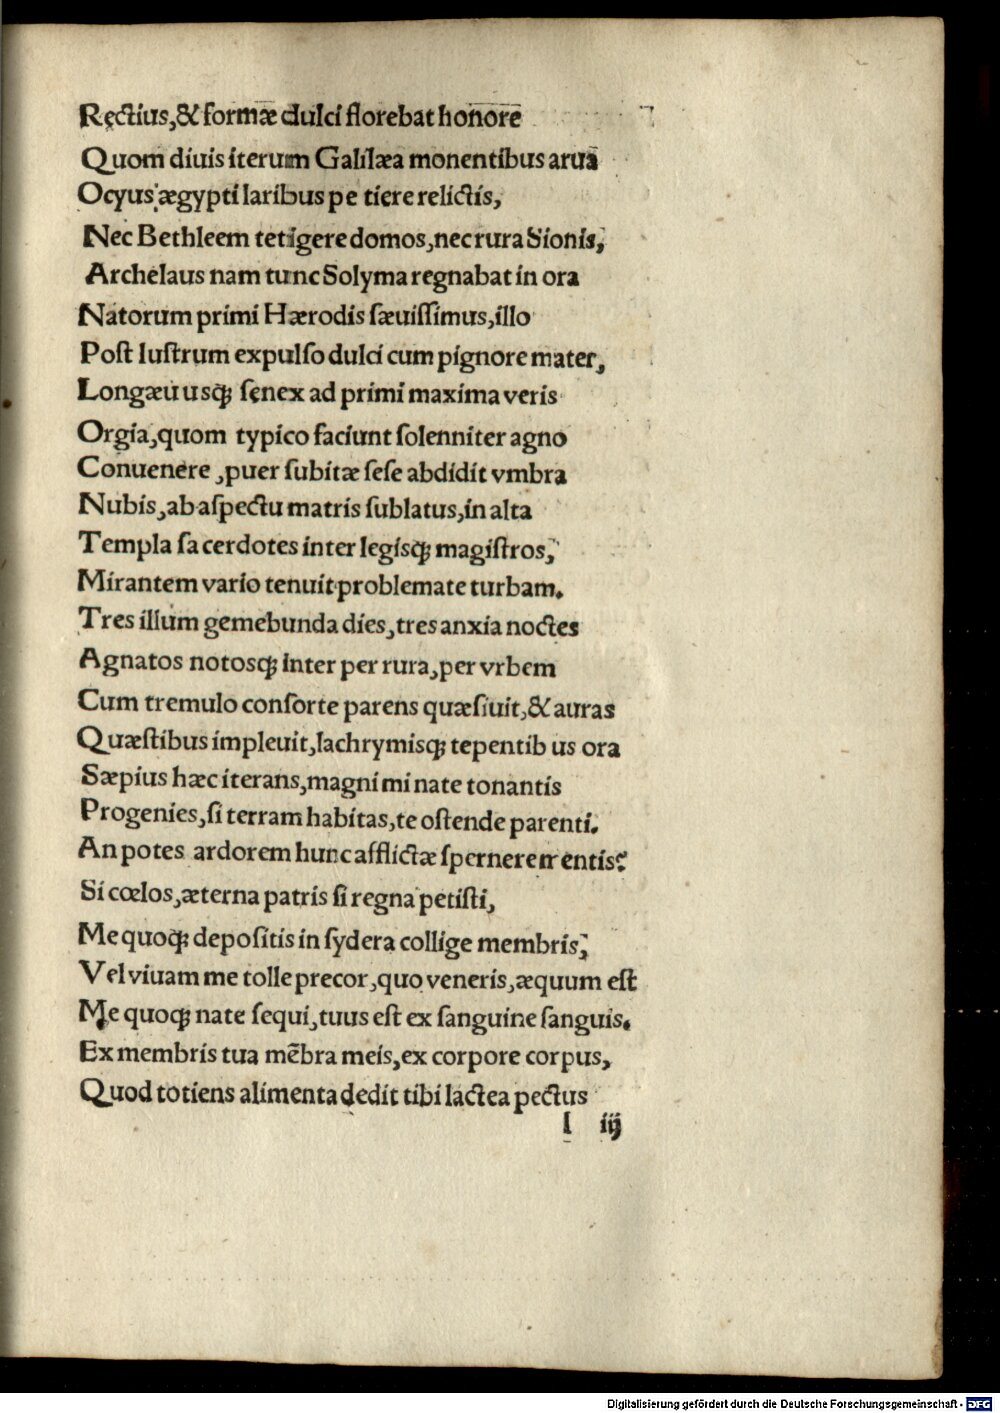 Rectius,& formæ dulci florebat honore
Quom diuis iterum Galilæa monentibus arua
Ocyus ægypti laribus petiere relictis,
Nec Bethleem tetigere domos,nec rura Sionis,
Archelaus nam tunc Solyma regnabat in ora
Natorum primi Hærodis sæuissimus,illo
Post lustrum expulso dulci cum pignore mater,
Longæuusꝗ senex ad primi maxima veris
Orgia,quom typico faciunt solenniter agno
Conuenere ,puer subitæ sese abdidit vmbra
Nubis,ab aspectu matris sublatus,in alta
Templa sacerdotes inter legisꝗ magistros,
Mirantem vario tenuit problemate turbam.
Tres illum gemebunda dies,tres anxia noctes
Agnatos notosꝗ inter per rura,per vrbem
Cum tremulo consorte parens quæsiuit,& auras
Quæstibus impleuit,lachrymisꝗ tepentibus ora
Sæpius hæc iterans,magni mi nate tonantis
Progenies,si terram habitas,te ostende parenti.
An potes ardorem hunc afflictæ spernere mentis?
Si cœlos,æterna patris si regna petisti,
Me quoꝗ depositis in sydera collige membris,
Vel viuam me tolle precor,quo veneris,æquum est
Me quoꝗ nate sequi,tuus est ex sanguine sanguis.
Ex membris tua mēbra meis,ex corpore corpus,
Quod totiens alimenta dedit tibi lactea pectus
l iij
Digitalisierung gefördert durch die Deutsche Forschungsgemeinschaft - DFG